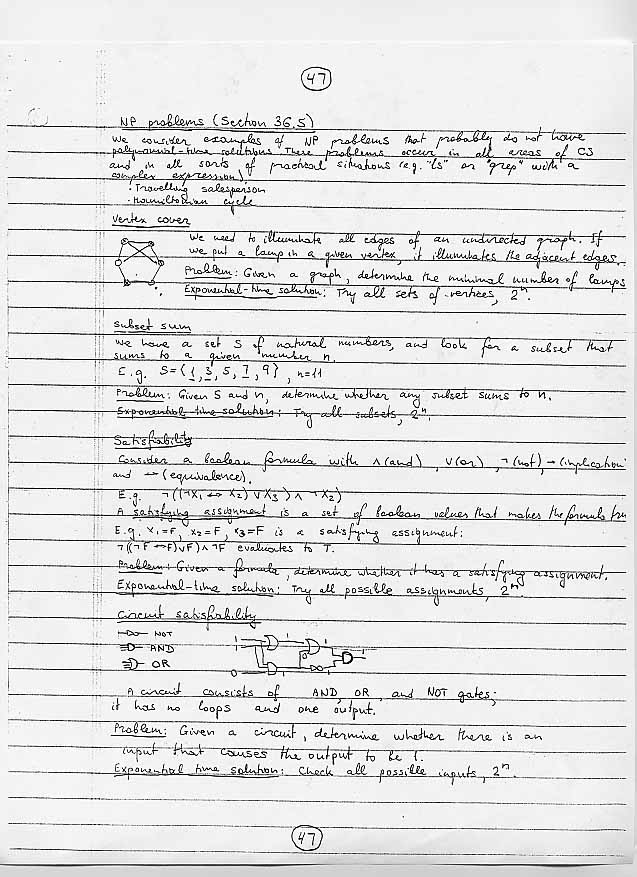 47
NP problems (Section 36.5)
We consider examples of NP problems that probably do not have
polynomial-time solutions. These problems occur in all areas of CS
and in all sorts of practical situations (e.g. "ls" or "grep" with a
complex expression)
· Travelling salesperson
· Hamiltonian cycle
Vertex cover
We need to illuminate all edges of an undirected graph. If
we put a lamp in a given vertex, it illuminates the adjacent edges.
Problem: Given a graph, determine the minimal number of lamps
Exponential-time solution: Try all sets of vertices, 2ⁿ.
Subset sum
We have a set S of natural numbers, and look for a subset that
sums to a given number n.
E.g. S={1,3,5,7,9}, n=11
Problem: Given S and n, determine whether any subset sums to n.
Exponential time solution: Try all subsets, 2ⁿ.
Satisfiability
Consider a boolean formula with ∧(and), ∨(or), ¬(not), →(implication)
and ↔ (equivalence).
E.g. ¬((¬x₁ ↔ x₂) ∨ x₃) ∧ ¬x₂)
A satisfying assignment is a set of boolean values that makes the formula tru
E.g. x₁=F, x₂=F, x₃=F is a satisfying assignment:
¬((¬F↔F)∨F)∧¬F evaluates to T.
Problem: Given a formula, determine whether it has a satisfying assignment.
Exponential-time solution: Try all possible assignments, 2ⁿ
Circuit satisfiability
NOT
AND
OR
1 1 1
1 0 1
0
A circuit consists of AND, OR, and NOT gates;
it has no loops and one output.
Problem: Given a circuit, determine whether there is an
input that causes the output to be 1.
Exponential time solution: Check all possible inputs, 2ⁿ.
47